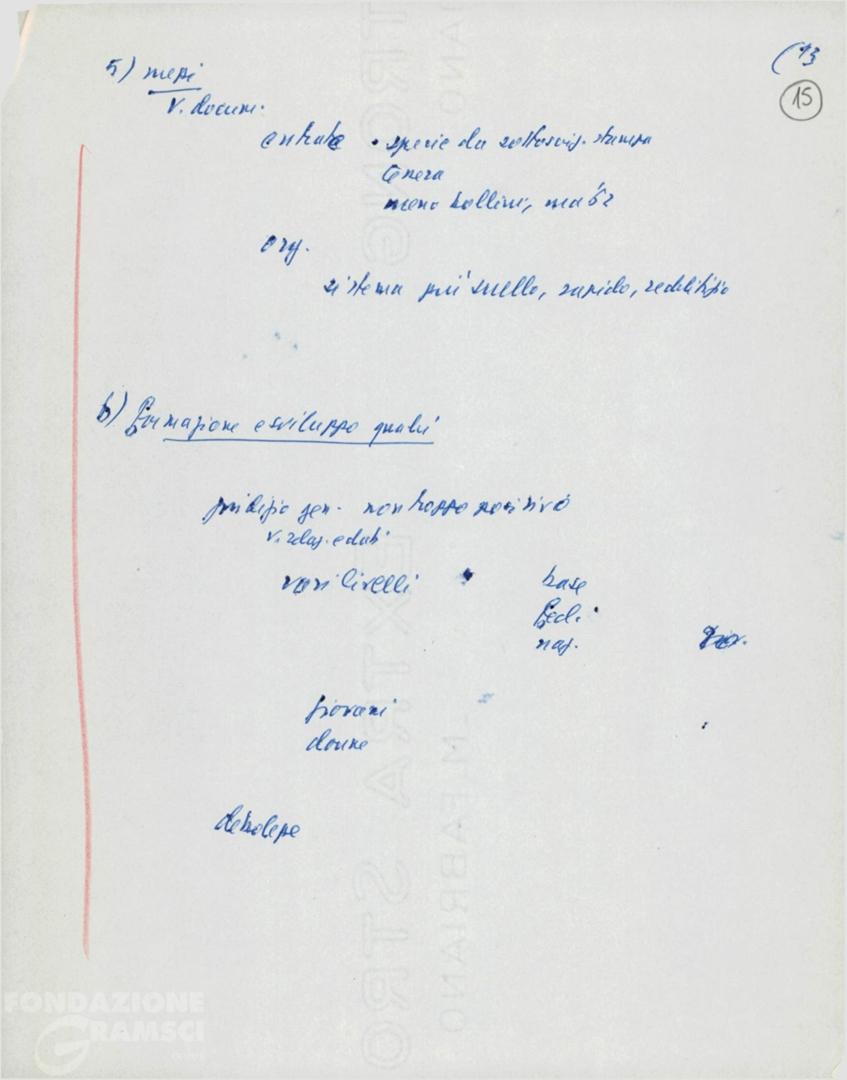 (13
15
5) mezzi
v. docum.
entrate • specie da sottoscriz. stampa
tessera
meno bollini, ma
org.
sistema più snello, rapido, redditizio
6) Formazione e sviluppo quadri
giudizio gen. non troppo positivo
v. relaz. e dati
vari livelli base
Fed.
naz.
giovani
donne
debolezze
FONDAZIONE
GRAMSCI
EXTRA STRO
M.FABRIANO